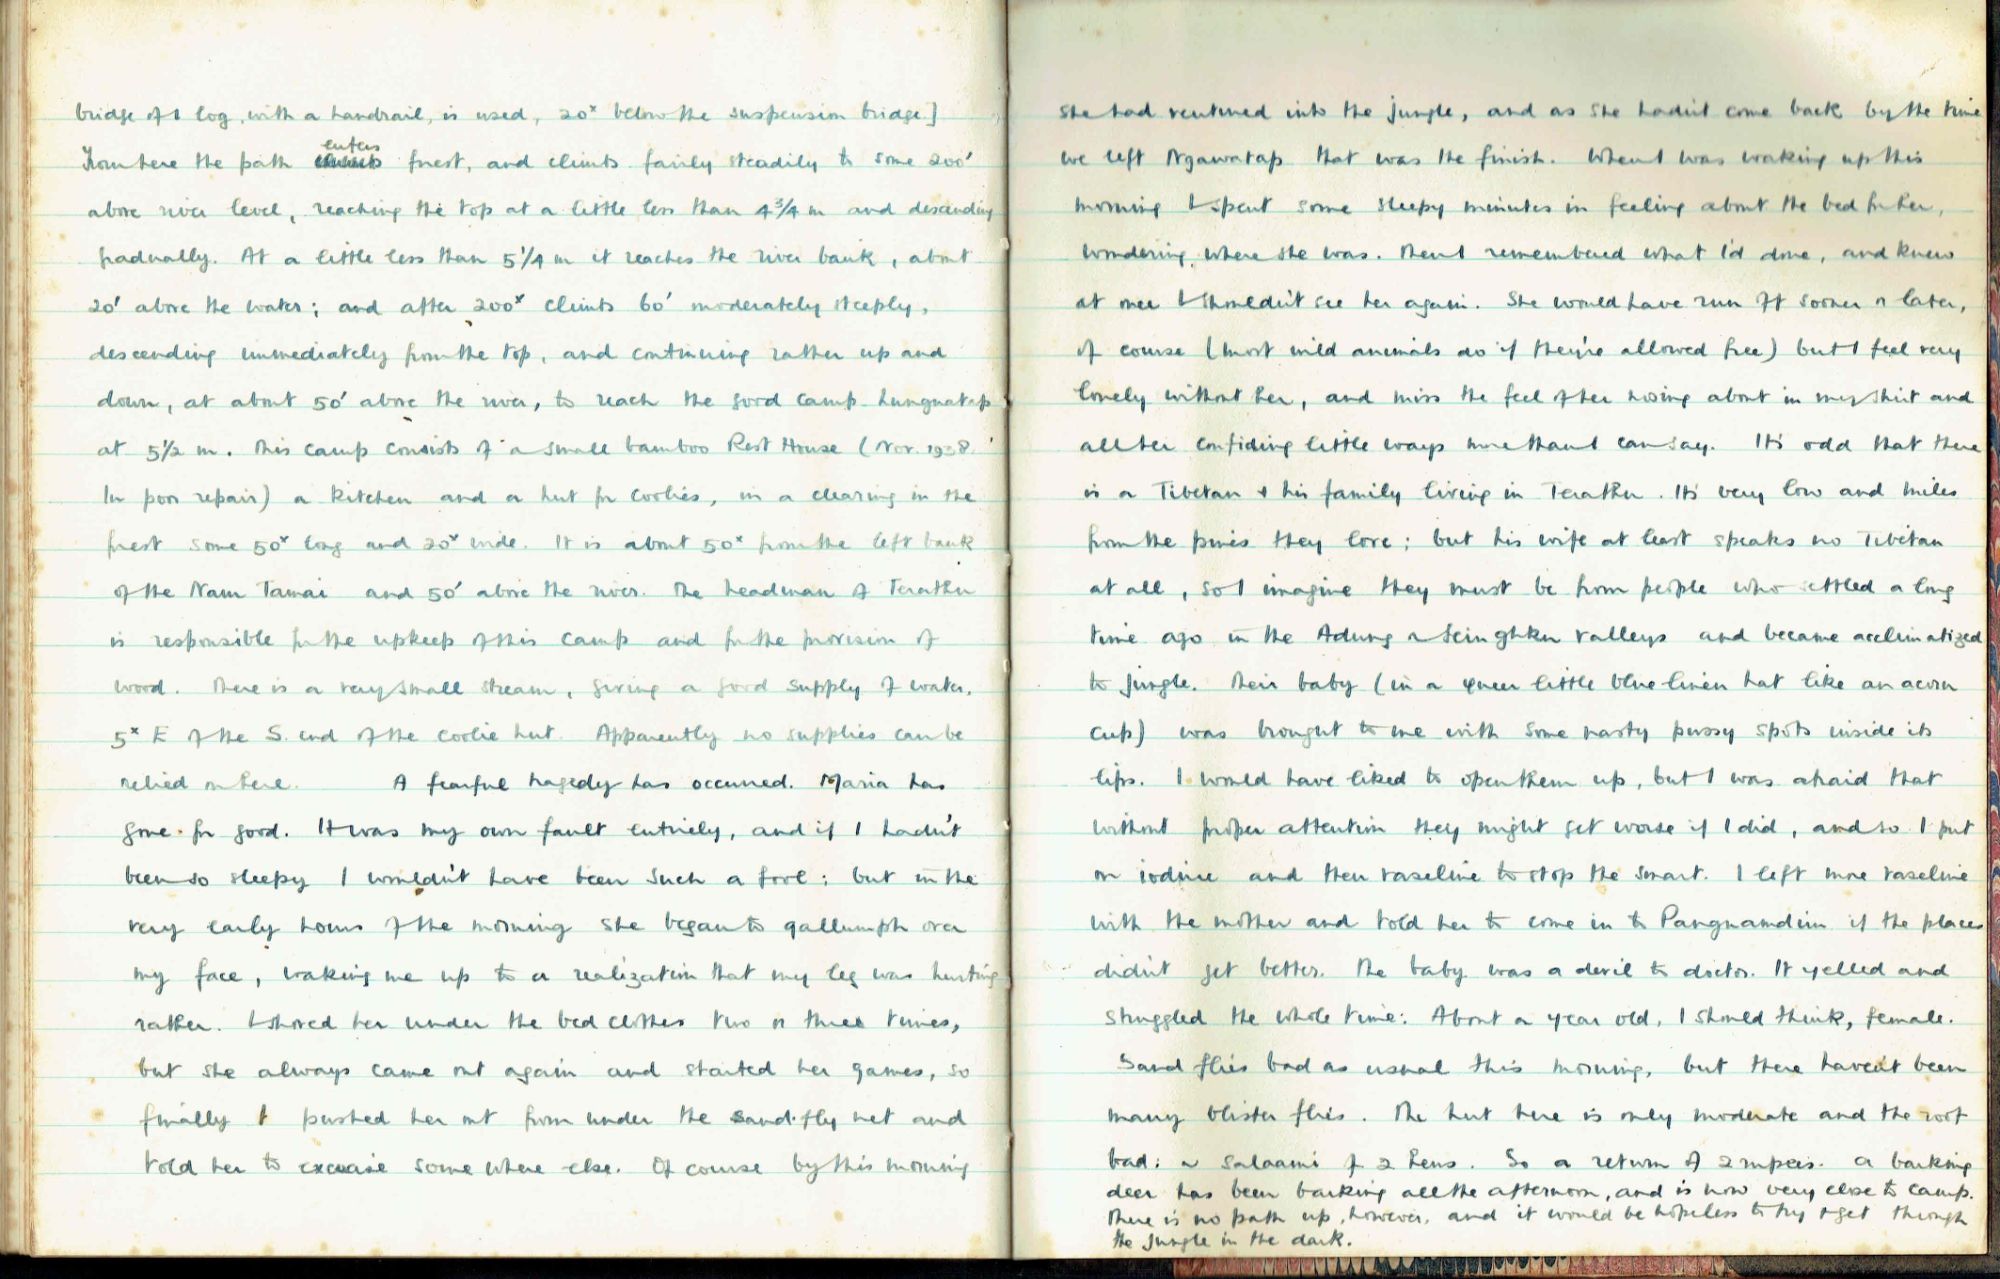 bridge of 1 log, with a handrail, is used, 20ˣ below the suspension bridge]
From here the path enters forest, and climbs fairly steadily to some 200'
above river level, reaching the top at a little less than 4¾ m and descending
gradually. At a little less than 5¼ m it reaches the river bank, about
20' above the water; and after 200ˣ climbs 60' moderately steeply,
descending immediately from the top, and continuing rather up and
down, at about 50' above the river, to reach the good camp Lungnatap
at 5½ m. This camp consists of a small bamboo Rest House (Nov. 1938.
In poor repair) a kitchen and a hut for coolies, in a clearing in the
forest some 50ˣ long and 20ˣ wide. It is about 50ˣ from the left bank
of the Nam Tamai and 50' above the river. The headman of Terathu
is responsible for the upkeep of this camp and for the provision of
wood. There is a very small stream, giving a good supply of water,
5ˣ E of the S. end of the coolie hut. Apparently no supplies can be
relied on here. A fearful tragedy has occurred. Maria has
gone for good. It was my own fault entirely, and if I hadn't
been so sleepy I wouldn't have been such a fool; but in the
very early hours of the morning she began to gallumph over
my face, waking me up to a realization that my leg was hurting
rather. I shoved her under the bed clothes two or three times,
but she always came out again and started her games, so
finally I pushed her out from under the sand-fly net and
told her to exercise somewhere else. Of course by this morning
she had ventured into the jungle, and as she hadn't come back by the time
we left Ngawatap that was the finish. When I was waking up this
morning I spent some sleepy minutes in feeling about the bed for her,
wondering where she was. Then I remembered what I'd done, and knew
at once I shouldn't see her again. She would have run off sooner or later,
of course (most wild animals do if they're allowed free) but I feel very
lonely without her, and miss the feel of her nosing about in my shirt and
all her confiding little ways more than I can say. It's odd that there
is a Tibetan & his family living in Terathu. It's very low and miles
from the pines they love; but his wife at least speaks no Tibetan
at all, so I imagine they must be from people who settled a long
time ago in the Adung or Seinghku valleys and became acclimatized
to jungle. Their baby (in a queer little blue linen hat like an acorn
cup) was brought to me with some nasty pussy spots inside its
lips. I would have liked to open them up, but I was afraid that
without proper attention they might get worse if I did, and so I put
on iodine and then vaseline to stop the smart. I left more vaseline
with the mother and told her to come in to Pangnamdim if the places
didn't get better. The baby was a devil to doctor. It yelled and
struggled the whole time. About a year old, I should think, female.
Sand flies bad as usual this morning, but there haven't been
many blister flies. The hut here is only moderate and the roof
bad: a salaami of 2 hens. So a return of 2 rupees. A barking
deer has been barking all the afternoon, and is now very close to camp.
There is no path up, however, and it would be hopeless to try & get through
the jungle in the dark.